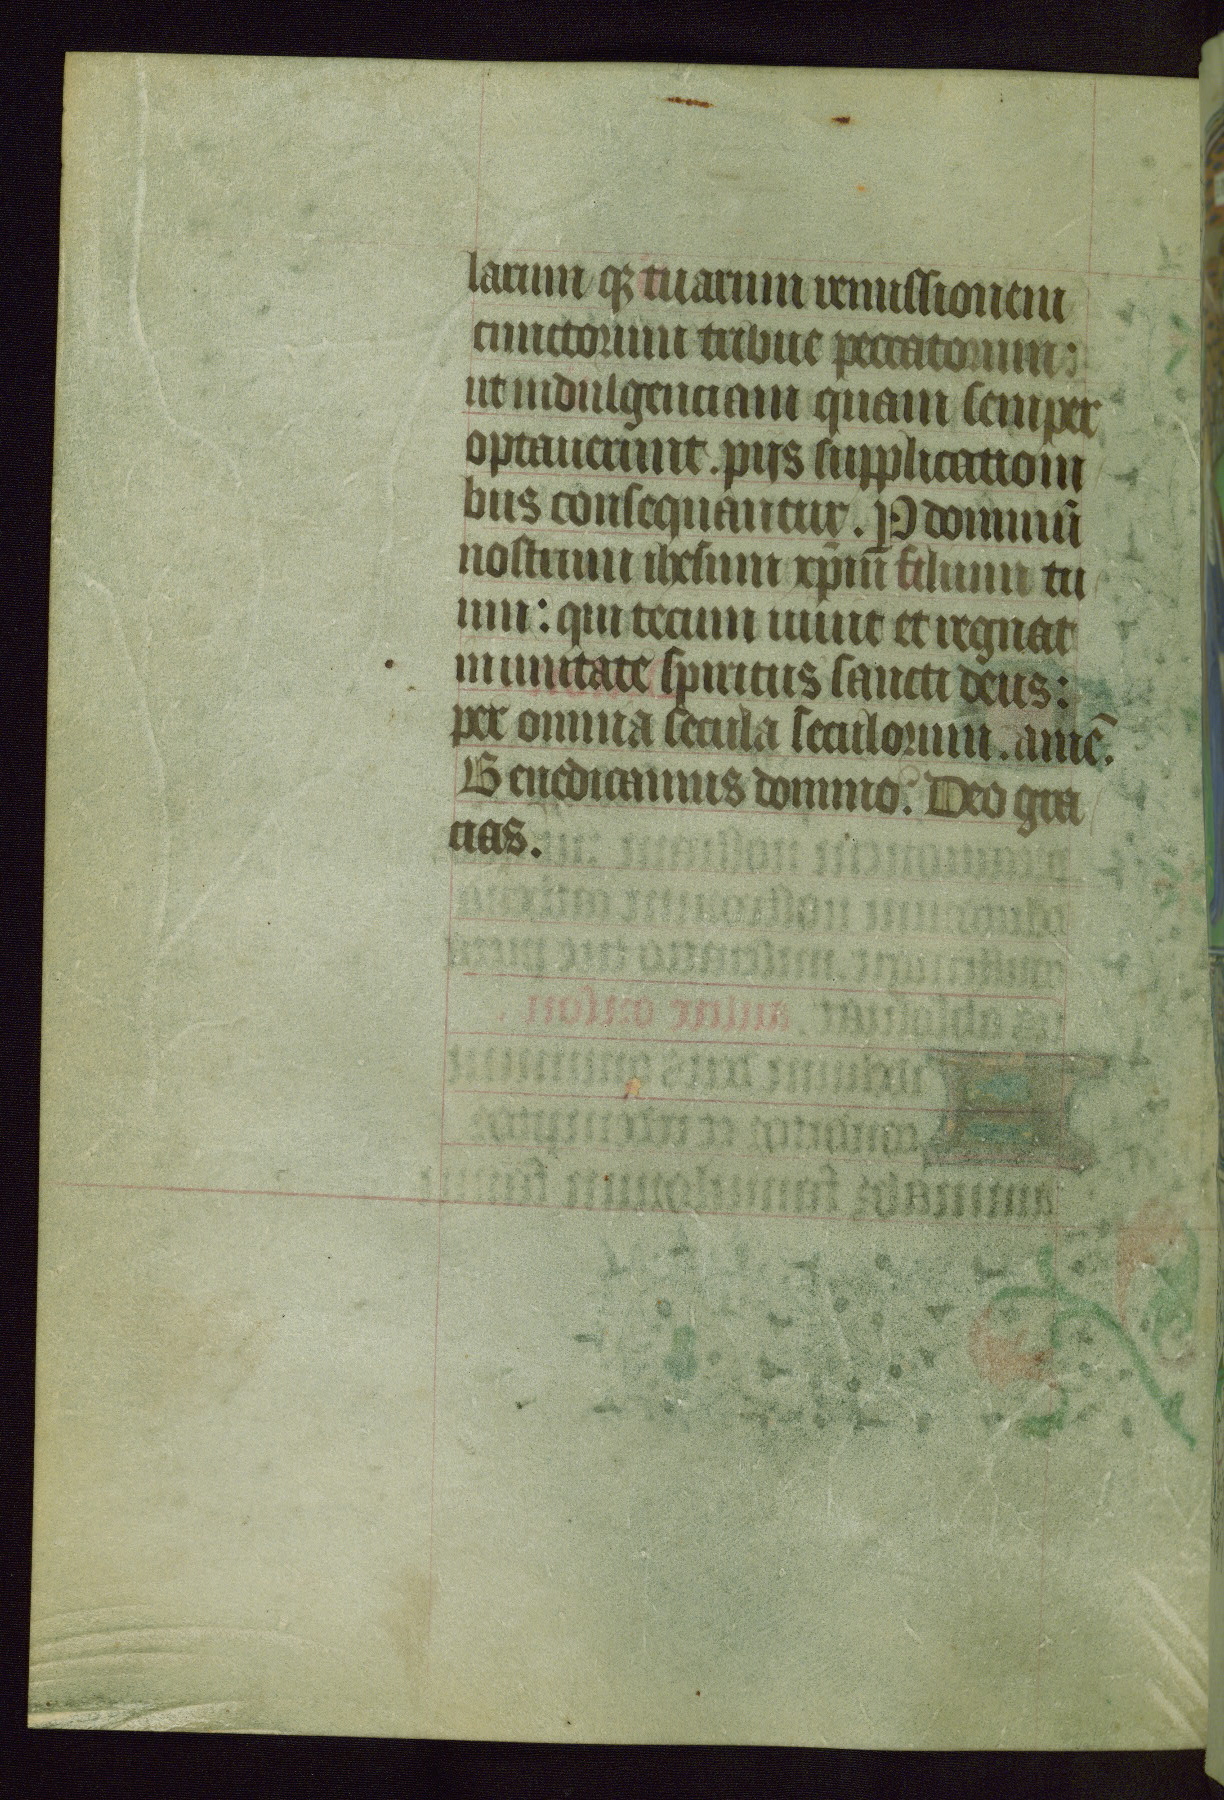 larum q3 tuarum remissionem
cunctorum tribue peccatorum:
ut indulgenciam quam semper
optauerunt. pijs supplicationi
bus consequantur. P dominū
nostrum ihesum xp̄m̄ filium tu
um: qui tecum uiuit et regnat
in unitate spiritus sancti deus:
per omnia secula seculorum. amē.
Benedicamus domino. Deo gra
cias.